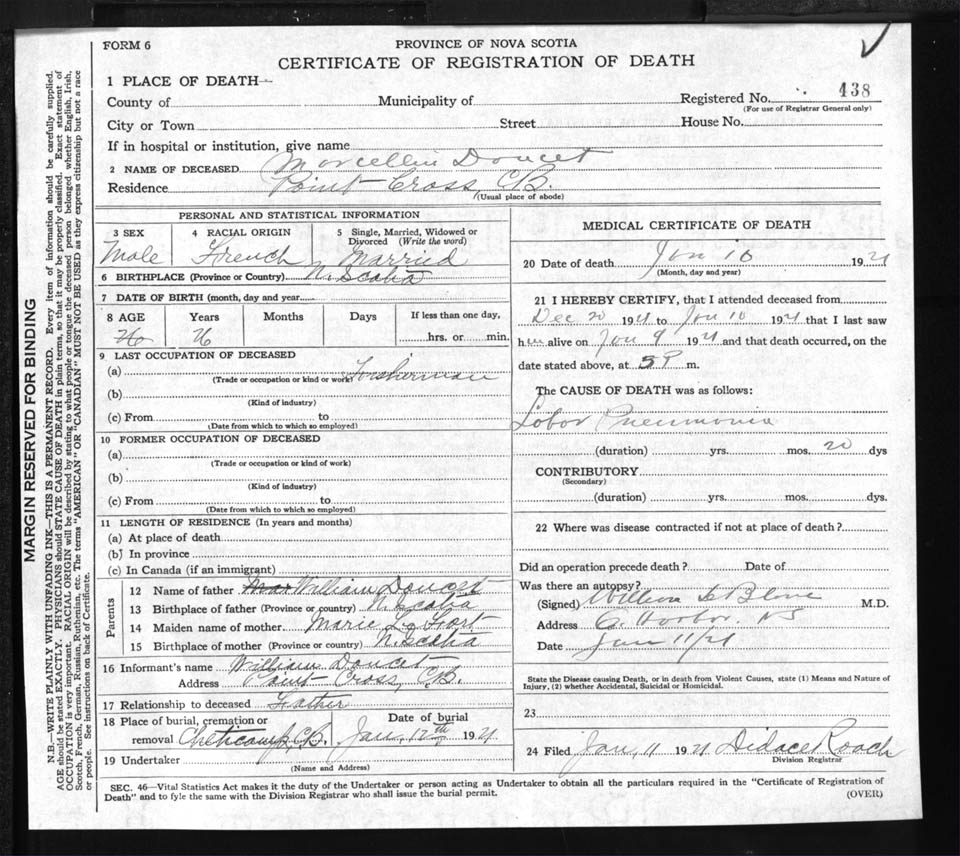 FORM 6
PROVINCE OF NOVA SCOTIA
CERTIFICATE OF REGISTRATION OF DEATH
1 PLACE OF DEATH
County of
Municipality of
Registered No. 438
(For use of Registrar General only)
City or Town
Street
House No.
If in hospital or institution, give name
2 NAME OF DECEASED Marcellin Doucet
Residence Point Cross, C.B.
(Usual place of abode)
PERSONAL AND STATISTICAL INFORMATION
3 SEX
Male
4 RACIAL ORIGIN
French
5 Single, Married, Widowed or Divorced (Write the word)
Married
6 BIRTHPLACE (Province or Country) N. Scotia
7 DATE OF BIRTH (month, day and year
8 AGE
Years
Months
Days
If less than one day,
hrs. or min.
9 LAST OCCUPATION OF DECEASED
(a)
(Trade or occupation or kind or work)
(b)
(Kind of industry)
(c) From to
(Date from which to which so employed)
10 FORMER OCCUPATION OF DECEASED
(a)
(Trade or occupation or kind of work)
(b)
(Kind of industry)
(c) From to
(Date from which to which so employed)
11 LENGTH OF RESIDENCE (In years and months)
(a) At place of death
(b) In province
(c) In Canada (if an immigrant)
Parents
12 Name of father William Doucet
13 Birthplace of father (Province or country) N. Scotia
14 Maiden name of mother Marie Le Fort
15 Birthplace of mother (Province or country) N. Scotia
16 Informant's name William Doucet
Address Point Cross, C.B.
17 Relationship to deceased Father
18 Place of burial, cremation or
removal Cheticamp, C.B.
Date of burial
Jan. 12th 1921
19 Undertaker
(Name and Address)
MEDICAL CERTIFICATE OF DEATH
20 Date of death Jan 10 1921
(Month, day and year)
21 I HEREBY CERTIFY, that I attended deceased from
Dec 20 192 to Jan 10 1921 that I last saw
h alive on Jan 9 1921 and that death occurred, on the
date stated above, at 5 P m.
The CAUSE OF DEATH was as follows:
Lobar Pneumonia
(duration) yrs. mos. 20 dys
CONTRIBUTORY
(Secondary)
(duration) yrs. mos. dys.
22 Where was disease contracted if not at place of death?
Did an operation precede death? Date of
Was there an autopsy?
(Signed) William Le Blanc M.D.
Address Harbor, NS
Date Jan 11/21
State the Disease causing Death, or in death from Violent Causes, state (1) Means and Nature of
Injury, (2) whether Accidental, Suicidal or Homicidal.
23
24 Filed Jan. 11 1921 Didace Roach
Division Registrar
SEC. 46—Vital Statistics Act makes it the duty of the Undertaker or person acting as Undertaker to obtain all the particulars required in the "Certificate of Registration of
Death" and to fyle the same with the Division Registrar who shall issue the burial permit.
(OVER)
MARGIN RESERVED FOR BINDING
N. B.—WRITE PLAINLY WITH UNFADING INK—THIS IS A PERMANENT RECORD. Every item of information should be carefully supplied.
AGE should be stated EXACTLY. PHYSICIANS should STATE CAUSE OF DEATH in plain terms, so that it may be properly classified. Exact statement of
OCCUPATION is very important. RACIAL ORIGIN will be described by stating to what people or tongue the deceased person belonged whether English, Irish,
Scotch, French, German, Russian, Ruthenian, etc. The terms "AMERICAN" OR "CANADIAN" MUST NOT BE USED as they express citizenship but not a race
or people. See instructions on back of Certificate.